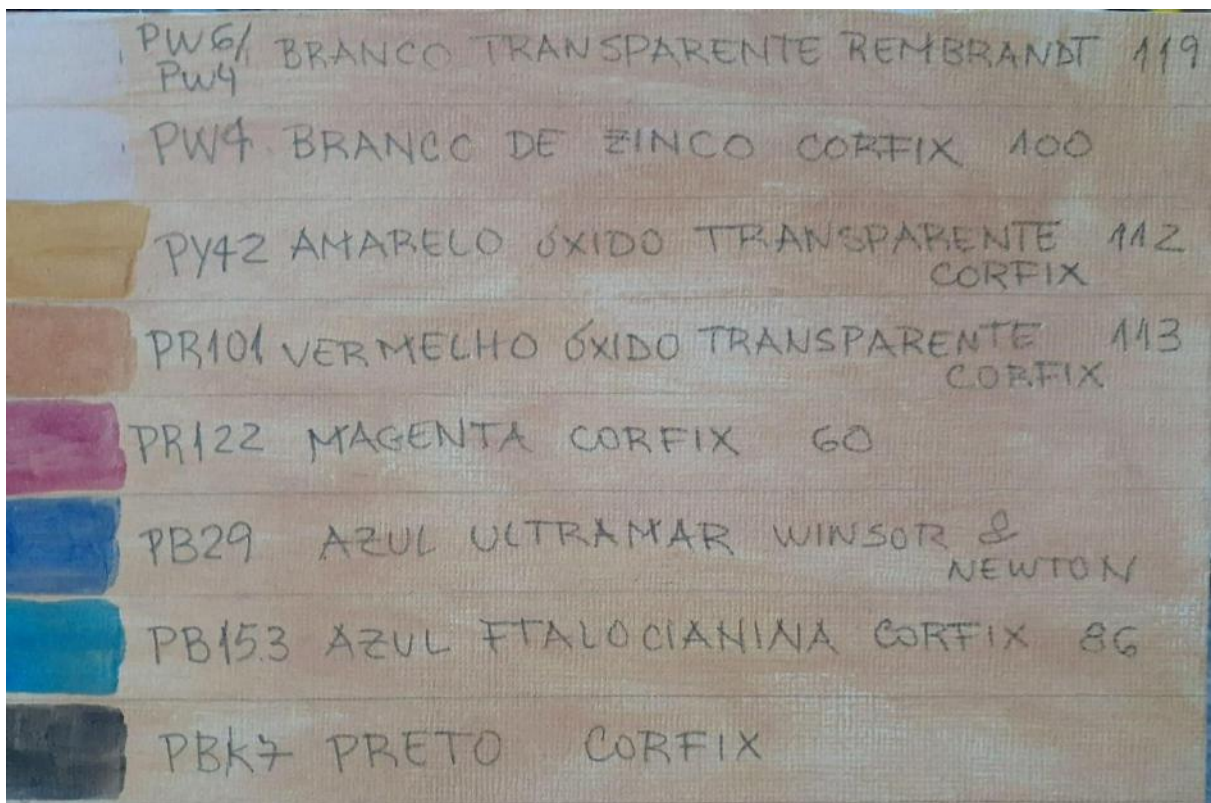 PW6/ BRANCO TRANSPARENTE REMBRANDT 119
PW4
PW4 BRANCO DE ZINCO CORFIX 100
PY42 AMARELO ÓXIDO TRANSPARENTE 112
CORFIX
PR101 VERMELHO ÓXIDO TRANSPARENTE 113
CORFIX
PR122 MAGENTA CORFIX 60
PB29 AZUL ULTRAMAR WINSOR &
NEWTON
PB15.3 AZUL FTALOCIANINA CORFIX 86
PBK7 PRETO CORFIX